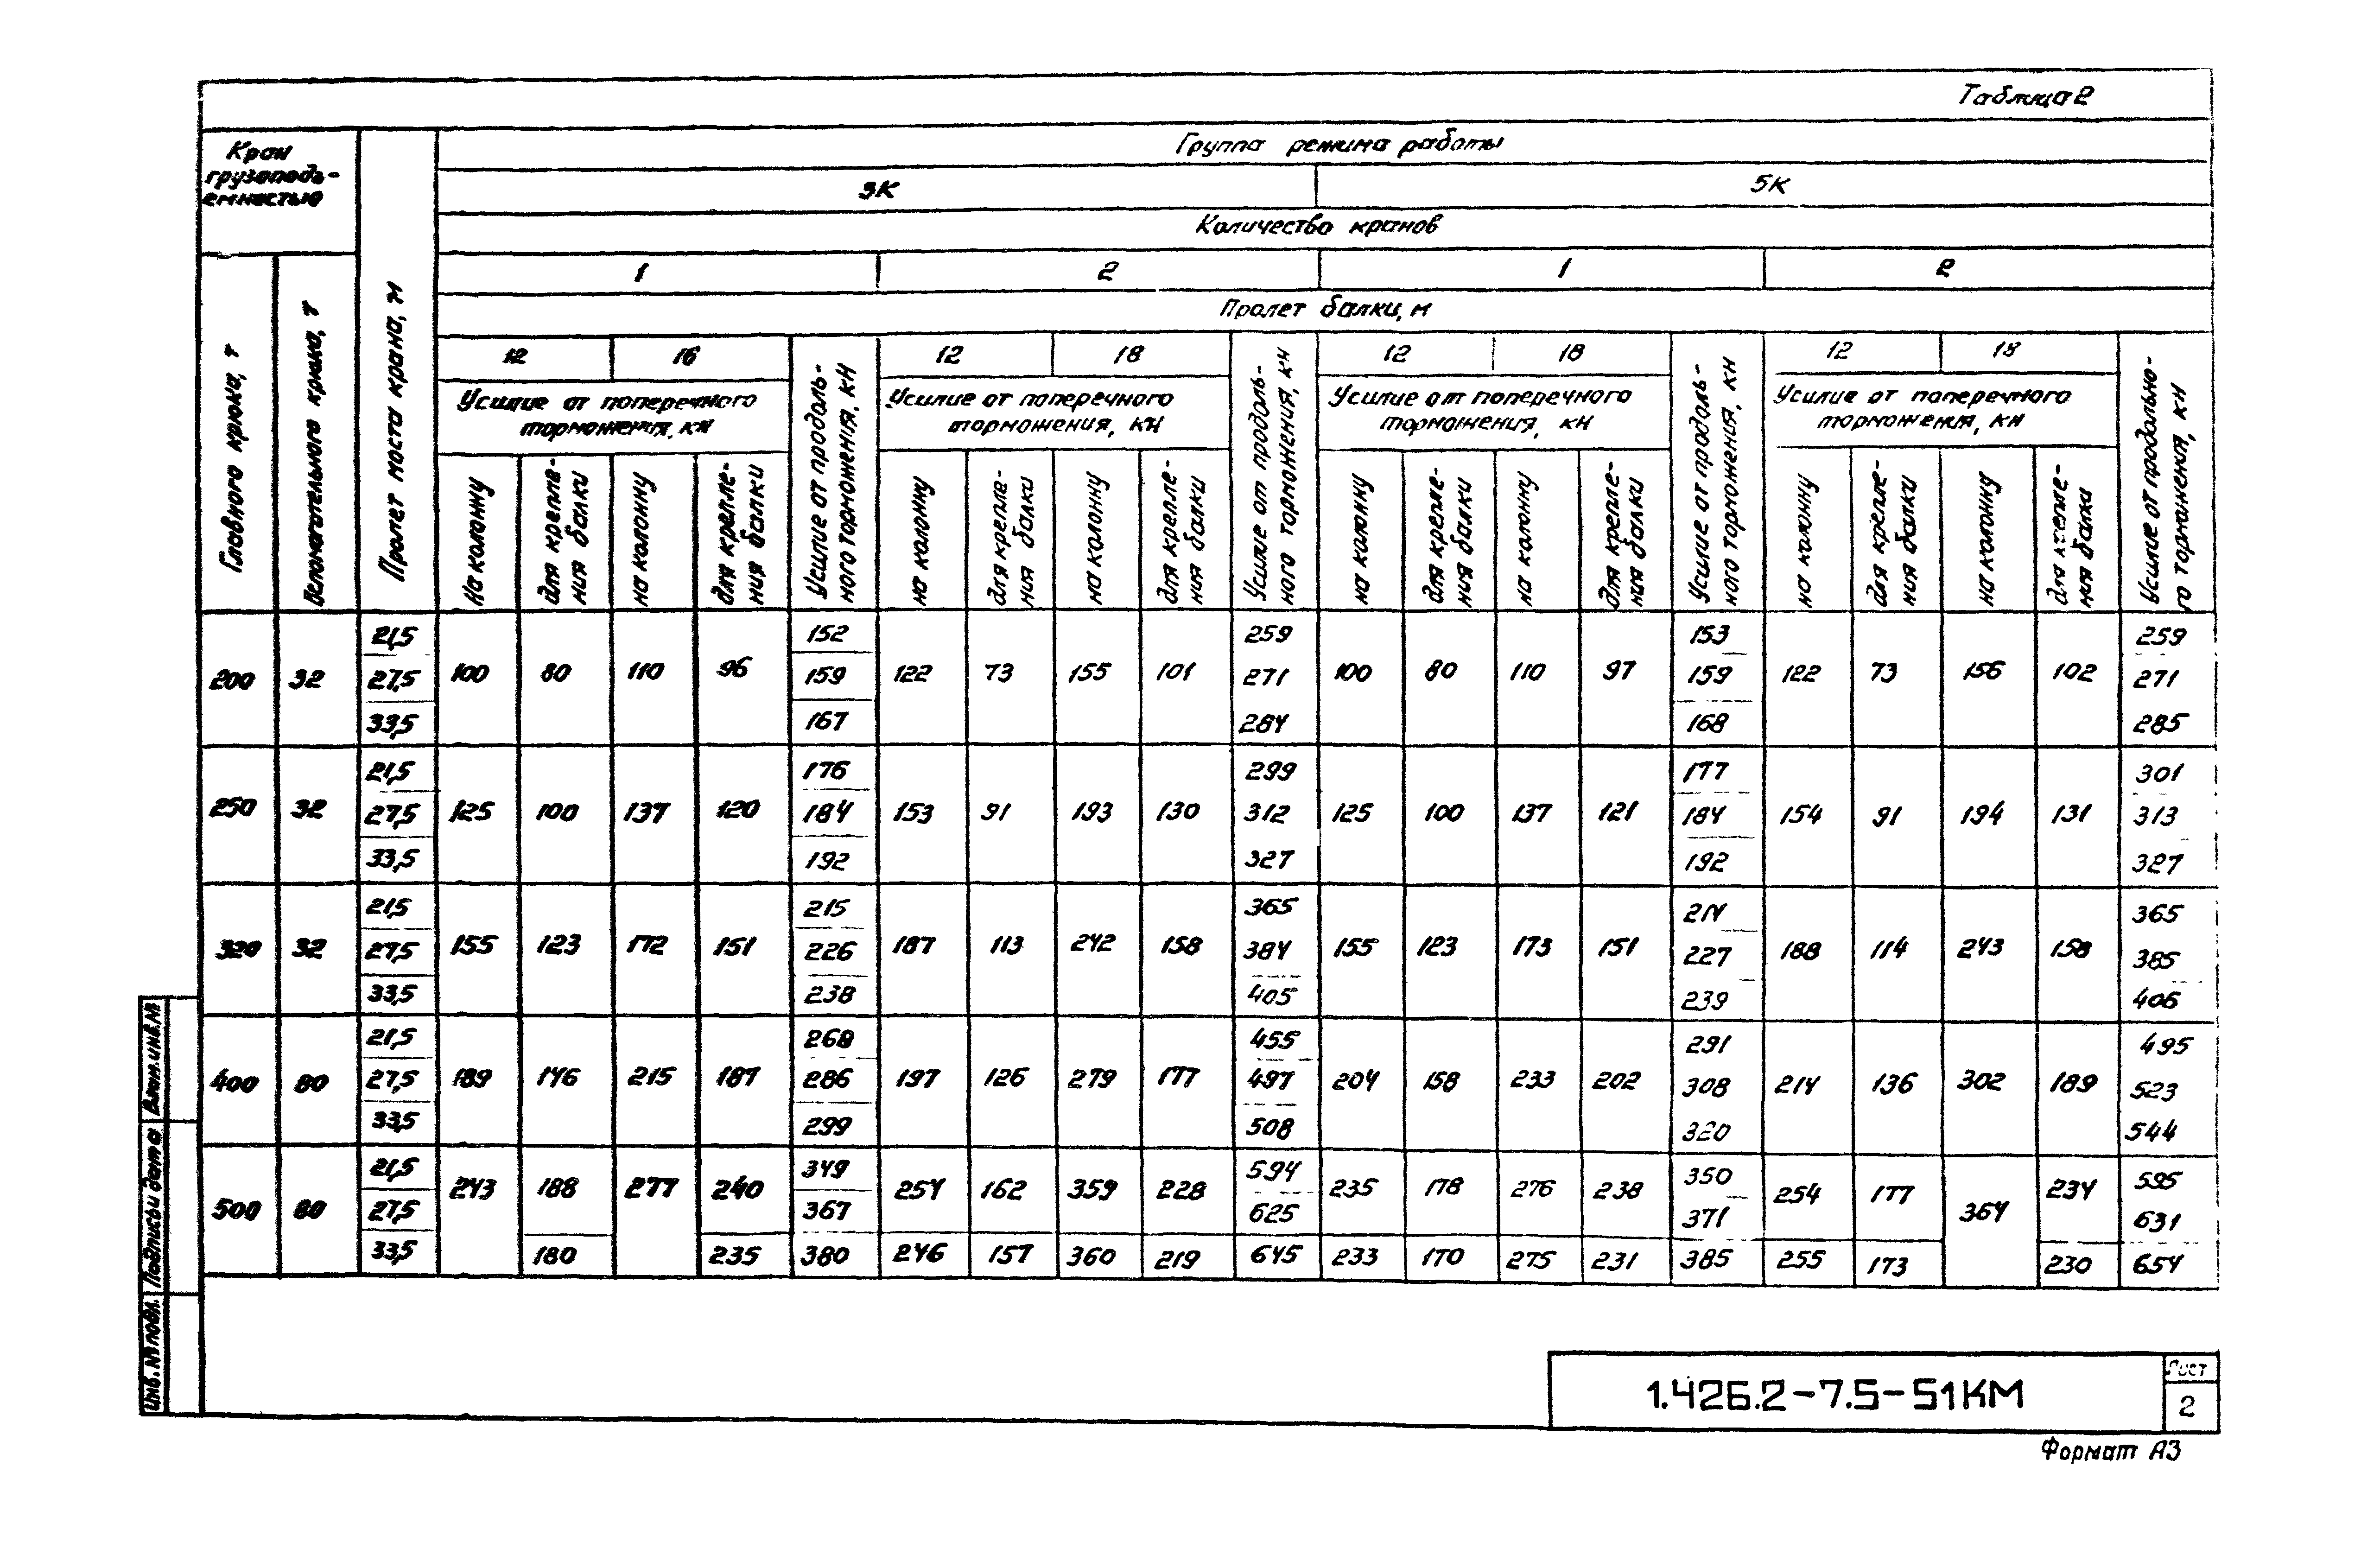 Таблица 2
Кран грузоподъ-
емностью
Группа режима работы
3К 5К
Количество кранов
1 2 1 2
Пролет балки, м
Главного крюка, т
Вспомогательного крюка, т
Пролет моста крана, м
12 16 12 18 12 18 12 18
Усилие от поперечного торможения, кН
Усилие от поперечного торможения, кН
Усилие от поперечного торможения, кН
Усилие от поперечного торможения, кН
На колонну
для крепле-
ния балки
на колонну
для крепле-
ния балки
Усилие от продоль-
ного торможения, кН
на колонну
для крепле-
ния балки
на колонну
для крепле-
ния балки
Усилие от продоль-
ного торможения, кН
на колонну
для крепле-
ния балки
на колонну
для крепле-
ния балки
Усилие от продоль-
ного торможения, кН
на колонну
для крепле-
ния балки
на колонну
для крепле-
ния балки
Усилие от продольно-
го торможения, кН
21,5 152 259 153 259
200 32 27,5 100 80 110 96 159 122 73 155 101 271 100 80 110 97 159 122 73 156 102 271
33,5 167 284 168 285
21,5 176 299 177 301
250 32 27,5 125 100 137 120 184 153 91 193 130 312 125 100 137 121 184 154 91 194 131 313
33,5 192 327 192 327
21,5 215 365 214 365
320 32 27,5 155 123 172 151 226 187 113 242 158 384 155 123 173 151 227 188 114 243 158 385
33,5 238 405 239 406
21,5 268 455 291 495
400 80 27,5 189 146 215 187 286 197 126 279 177 497 204 158 233 202 308 214 136 302 189 523
33,5 299 508 320 544
21,5 243 188 277 240 349 254 162 359 228 594 235 178 276 238 350 254 177 234 595
500 80 27,5 367 625 371 364 631
33,5 180 235 380 246 157 360 219 645 233 170 275 231 385 255 173 230 654
Инв. № подл. Подпись и дата Взам. инв. №
1.426.2-7.5-51КМ
Лист
2
Формат А3